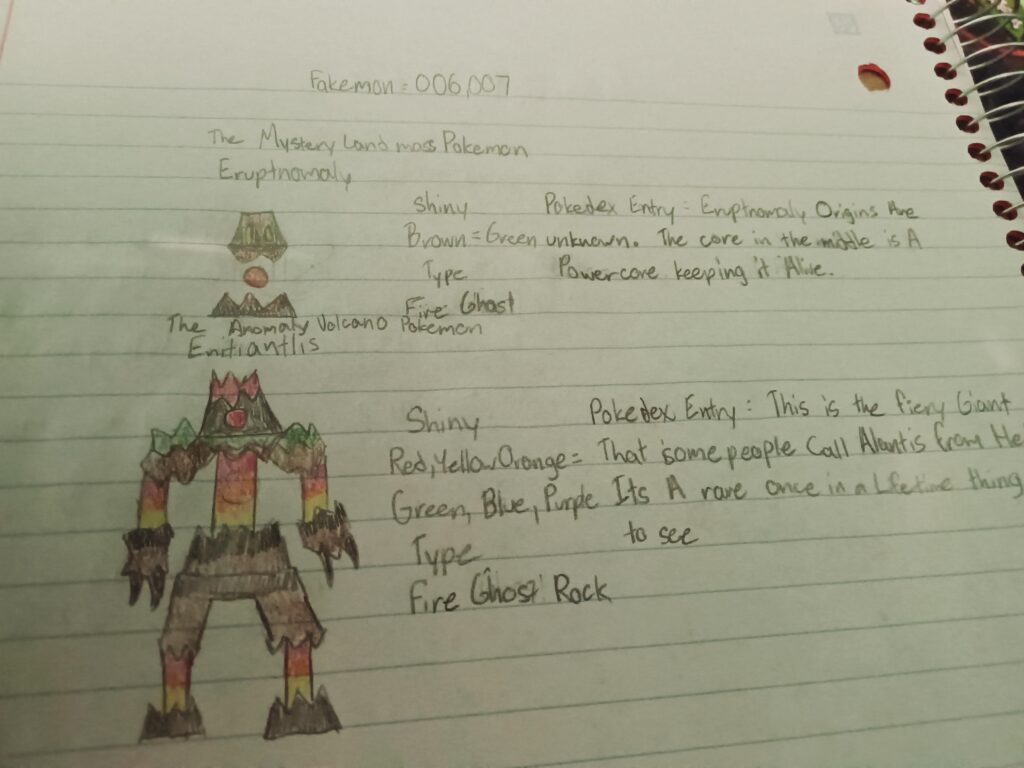 Fakemon : 006,007
The Mystery Land mass Pokemon
Eruptnomaly
Shiny
Brown = Green
Type
Fire Ghost
Pokedex Entry : Eruptnomaly Origins Are
unknown. The core in the middle is A
Powercore keeping it Alive.
The Anomaly Volcano Pokemon
Enitiantlis
Shiny
Red, Yellow, Orange =
Green, Blue, Purple
Type
Fire Ghost Rock
Pokedex Entry : This is the fiery Giant
That some people Call Alantis from He
Its A rare once in a Lifetime thing
to see